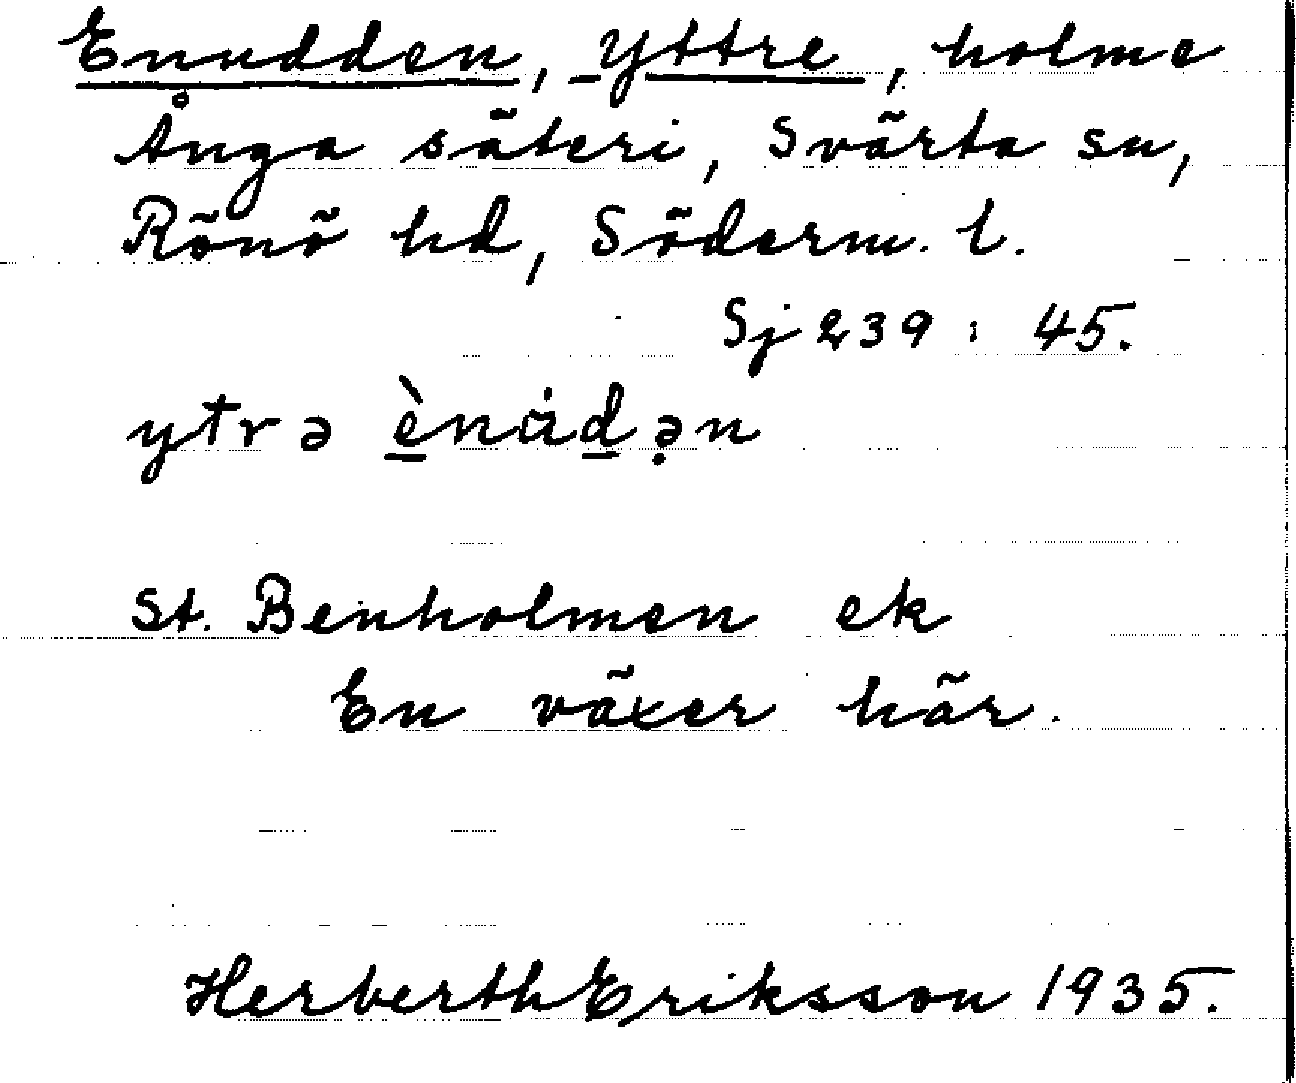 Enudden, Yttre, holme
Ånga säteri, Svärta sn,
Rönö hd, Söderm. l.
Sj 239 : 45.
ytrə ènȧdə̣n
St. Benholmen ek
En växer här.
Herberth Eriksson 1935.